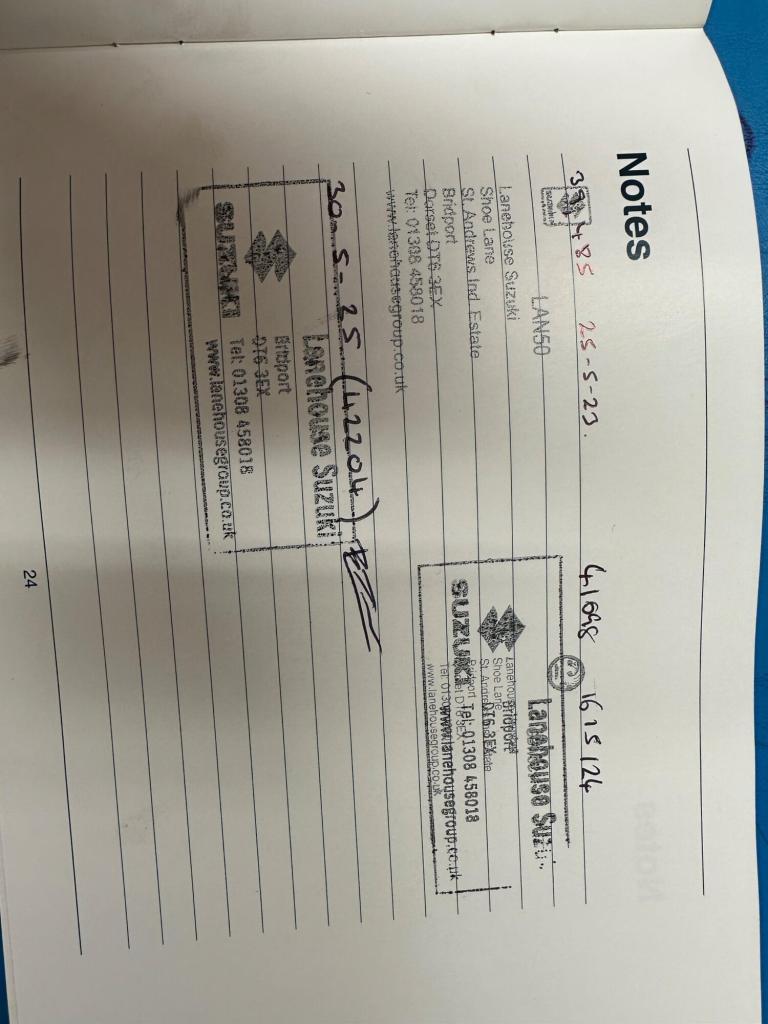 Notes
485 25-5-23.
LAN50
Lanehouse Suzuki
Shoe Lane
St. Andrews Ind. Estate
Bridport
Dorset DT6 3EX
Tel: 01308 458018
www.lanehousegroup.co.uk
41698 16/5/24
Lanehouse
Bridport
DT6 3EX
SUZUKI Tel: 01308 458018
www.lanehousegroup.co.uk
Shoe Lane
www.lanehousegroup.co.uk
30-5-25 (42204)
Lanehouse Suzuki
Bridport
DT6 3EX
SUZUKI Tel: 01308 458018
www.lanehousegroup.co.uk
24